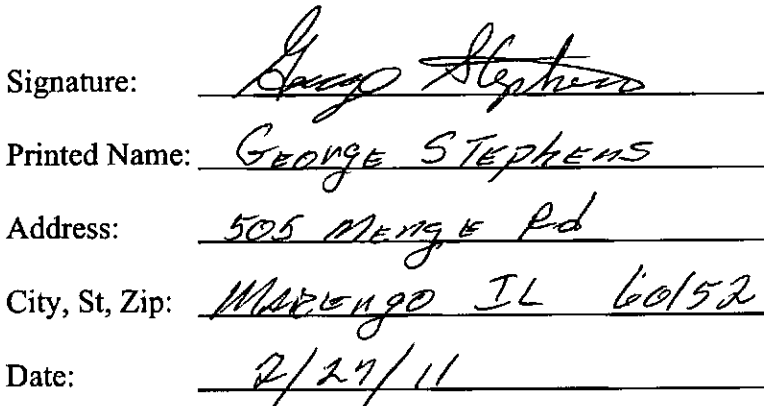 Signature: George Stephens
Printed Name: George Stephens
Address: 505 Menge Rd
City, St, Zip: Marengo IL 60152
Date: 2/27/11